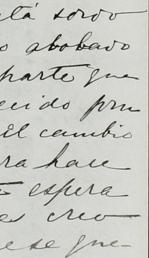 tá sordo
o abobado
parte que
ecido por
El cambio
ra hace
espera
es creo
ese que-